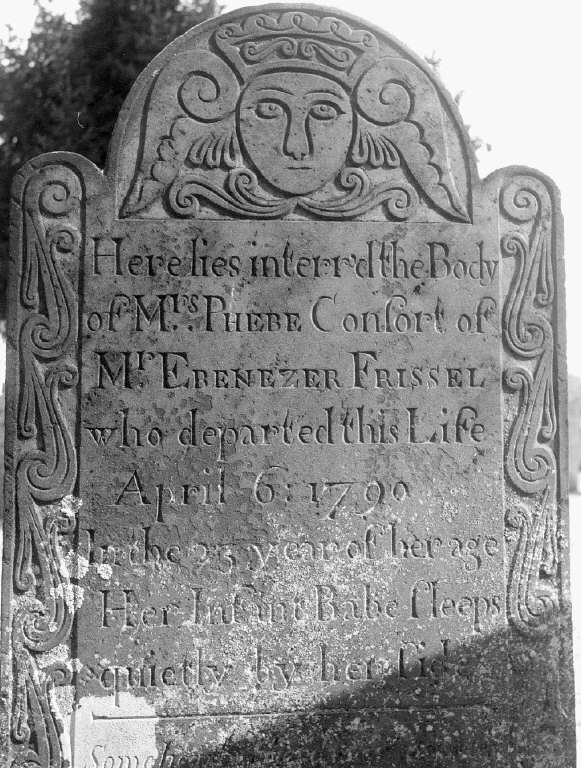 Here lies interr'd the Body
of Mrs. PHEBE Conſort of
Mr EBENEZER FRISSEL
who departed this Life
April 6: 1790
In the 23 year of her age
Her Infant Babe ſleeps
quietly by her ſide